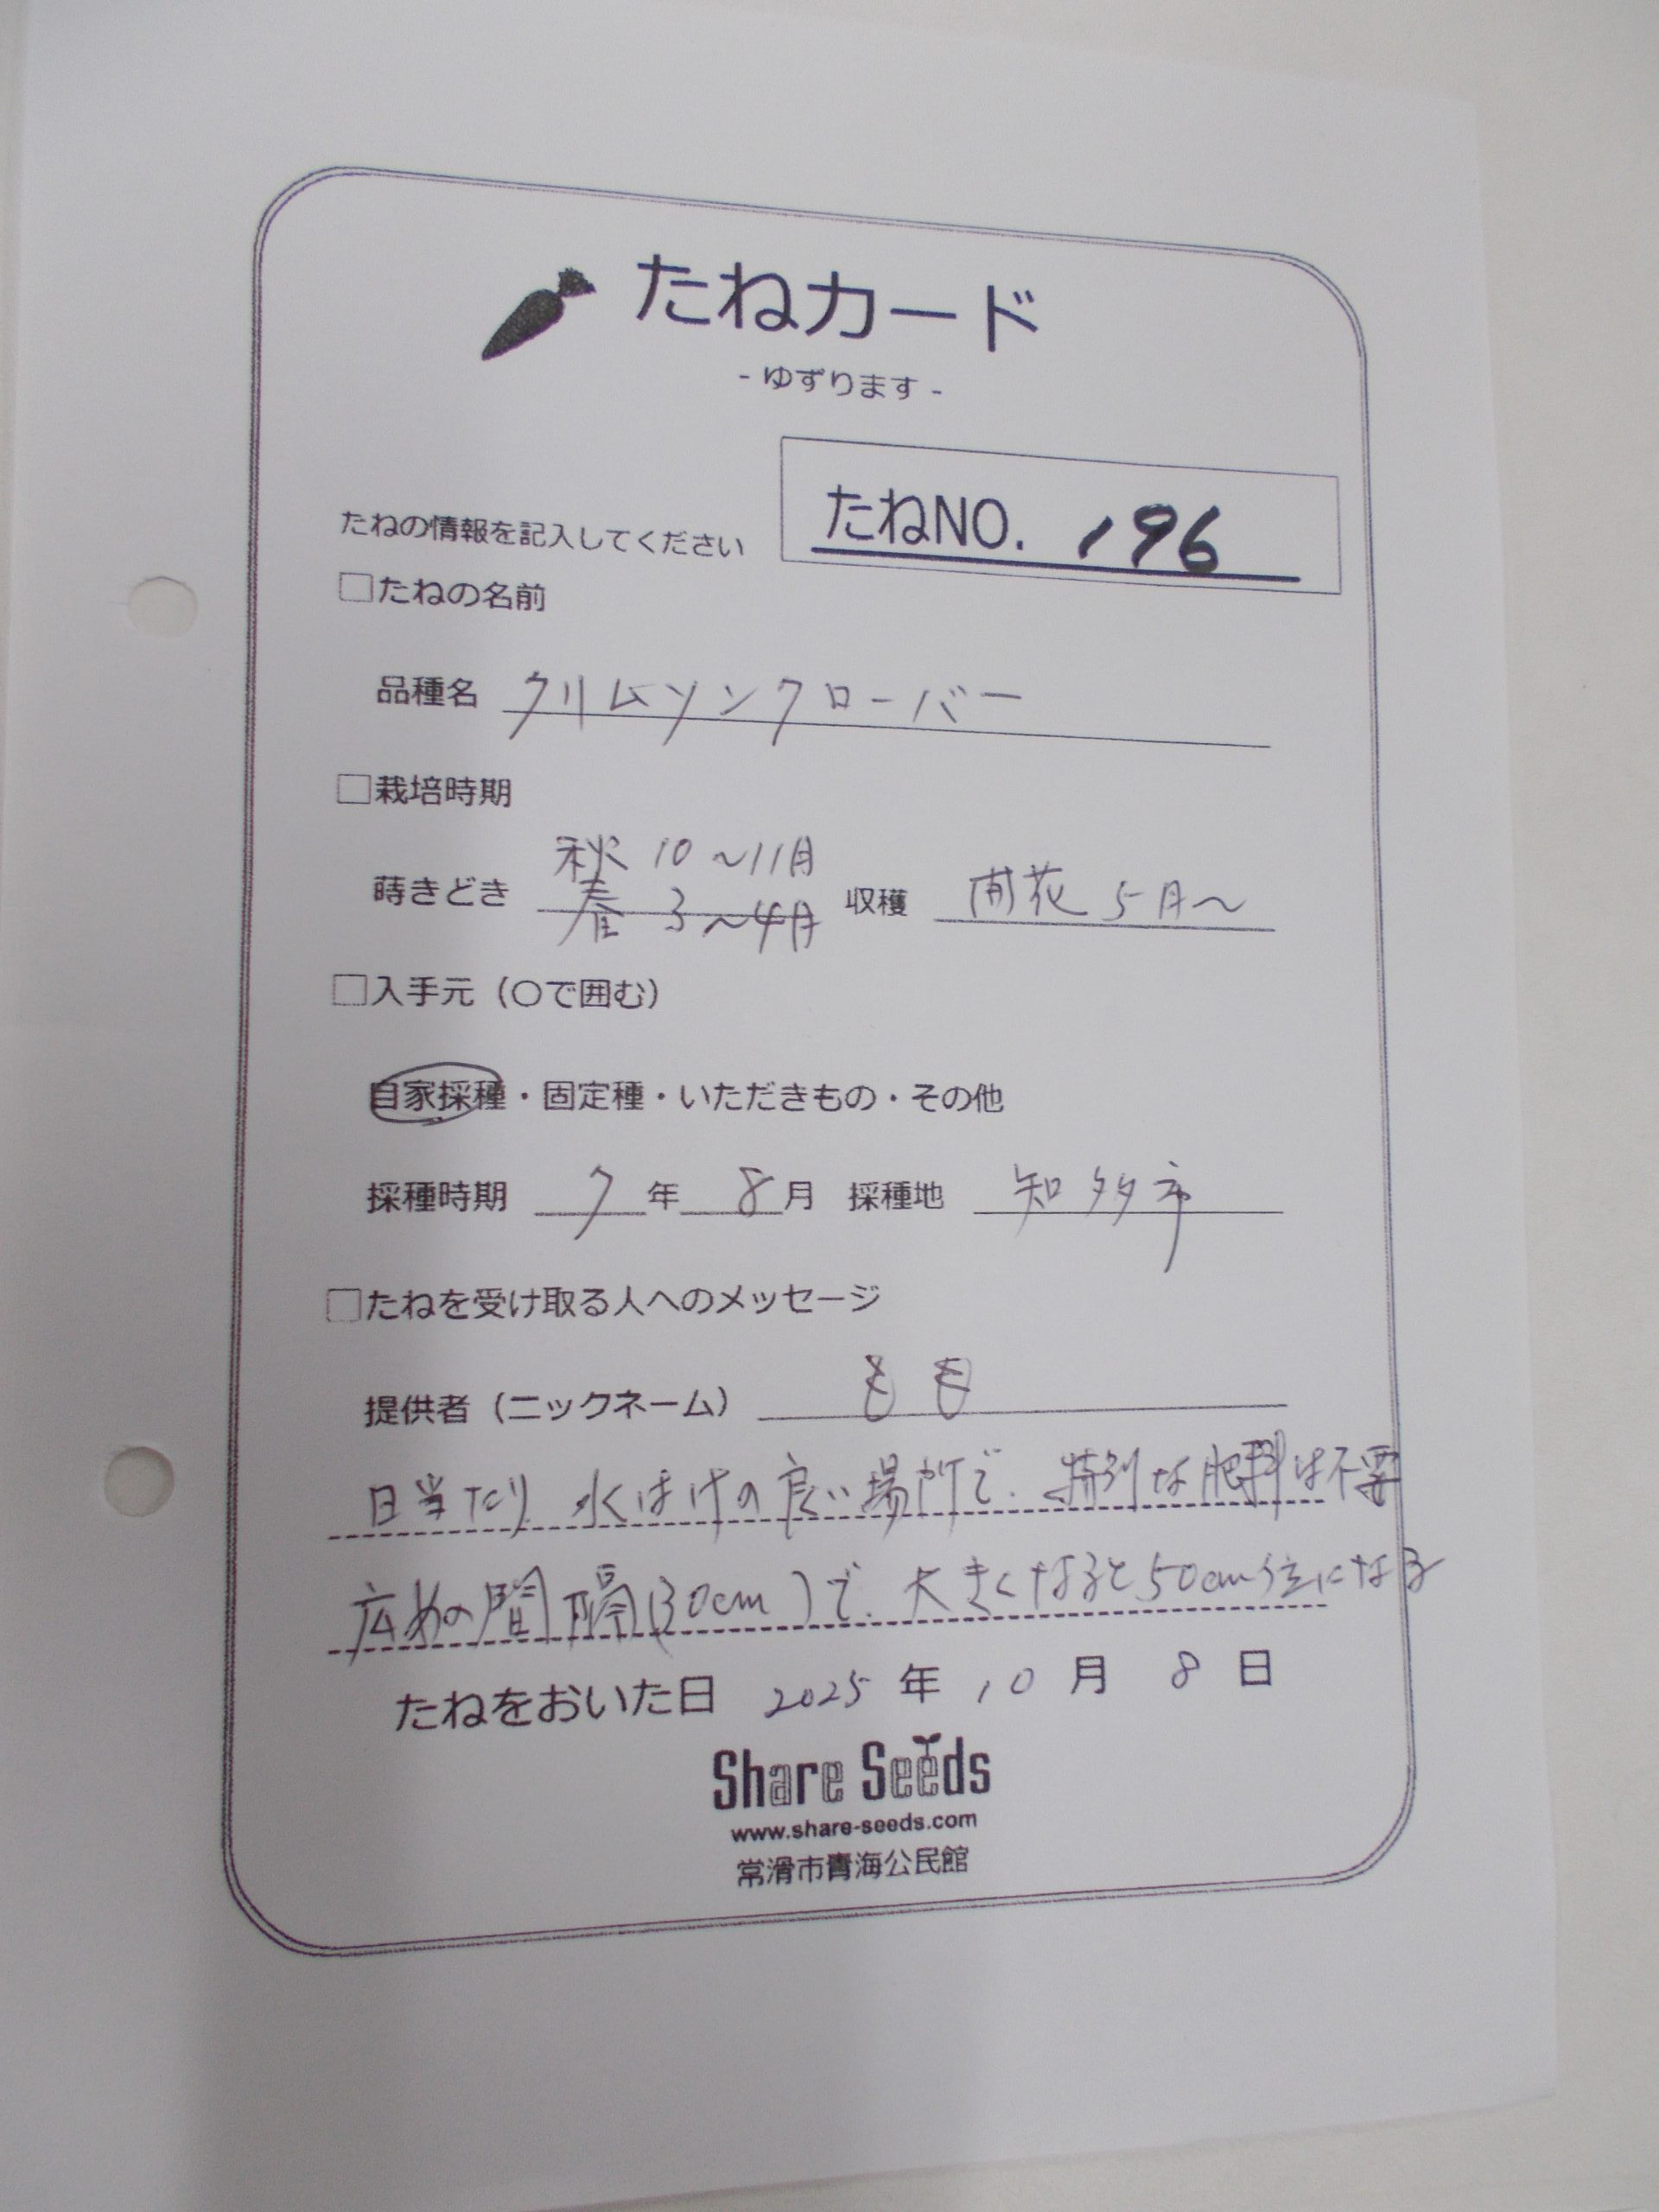 たねカード
- ゆずります -
たねNO. 196
たねの情報を記入してください
□たねの名前
品種名 クリムソンクローバー
□栽培時期
秋 10~11月
蒔きどき 春 3~4月 収穫 開花 5月~
□入手元(○で囲む)
自家採種・固定種・いただきもの・その他
採種時期 7年 8月 採種地 知多市
□たねを受け取る人へのメッセージ
提供者(ニックネーム) もも
日当たり 水はけの良い場所で、特別な肥料は不要
広めの間隔(30cm)で、大きくなると50cm位になる
たねをおいた日 2025年 10月 8日
Share Seeds
www.share-seeds.com
常滑市青海公民館